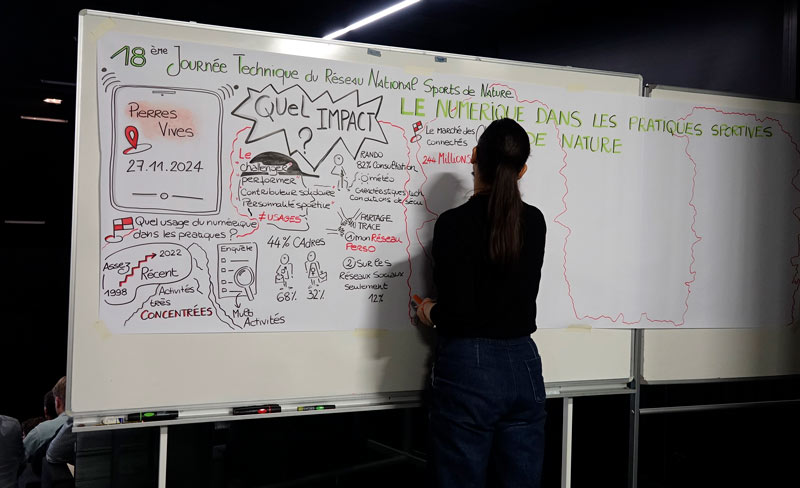 18ème Journée Technique du Réseau National Sports de Nature
LE NUMÉRIQUE DANS LES PRATIQUES SPORTIVES
DE NATURE
Pierres
Vives
27.11.2024
QUEL IMPACT
?
Le
"challenge"
performer
Contributeur solidaire
"Personnalité sportive"
≠ USAGES
44% CAdres
68% 32%
Quel usage du numérique
dans les pratiques ?
Assez
Récent
1998
2022
Activités
très
CONCENTRÉES
ENQUÊTE
Multi
Activités
RANDO
82% Consultation
météo
Caractéristiques
Conditions de
PARTAGE
TRACE
① mon Réseau
Perso
② Sur les
Réseaux Sociaux
Seulement
12%
Le Marché des
connectés
Millions